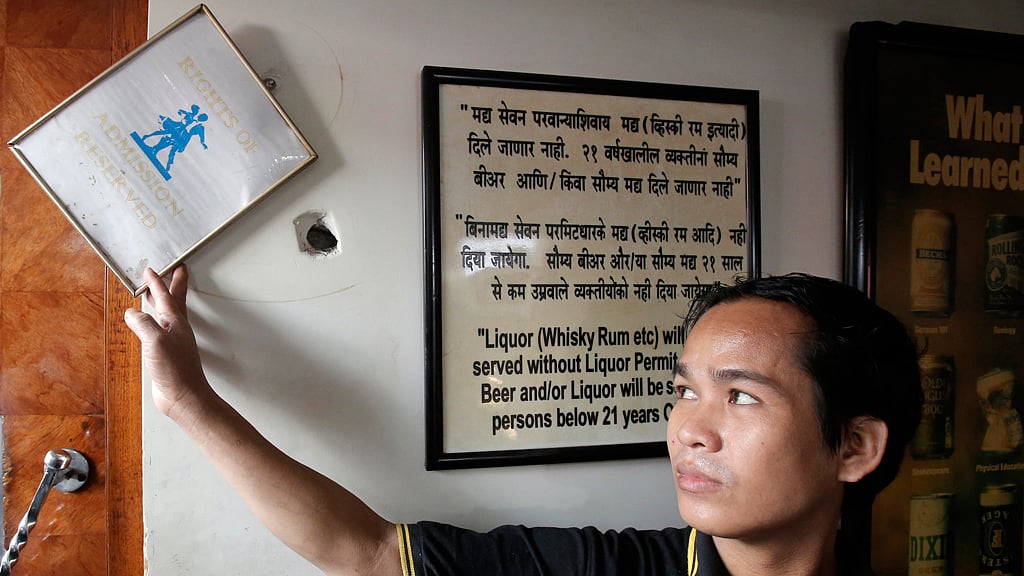 RIGHTS OF
ADMISSION
RESERVED
" मद्य सेवन परवान्याशिवाय मद्य ( व्हिस्की रम इत्यादी )
दिले जाणार नाही. २१ वर्षखालील व्यक्तीनां सौम्य
बीअर आणि/ किंवा सौम्य मद्य दिले जाणार नाही"
"बिनामद्य सेवन परमिटधारके मद्य ( व्हीस्की रम आदि ) नही
दिया जायेगा. सौम्य बीअर और/या सौम्य मद्य २१ साल
से कम उम्रवाले व्यक्तीयोंको नही दिया
"Liquor (Whisky Rum etc) will
served without Liquor Permit
Beer and/or Liquor will be
persons below 21 years
What
Learned
BECK'S
ROLLING
ROCK
German 101
Geology
Shakespeare
Physical Education
DIXI